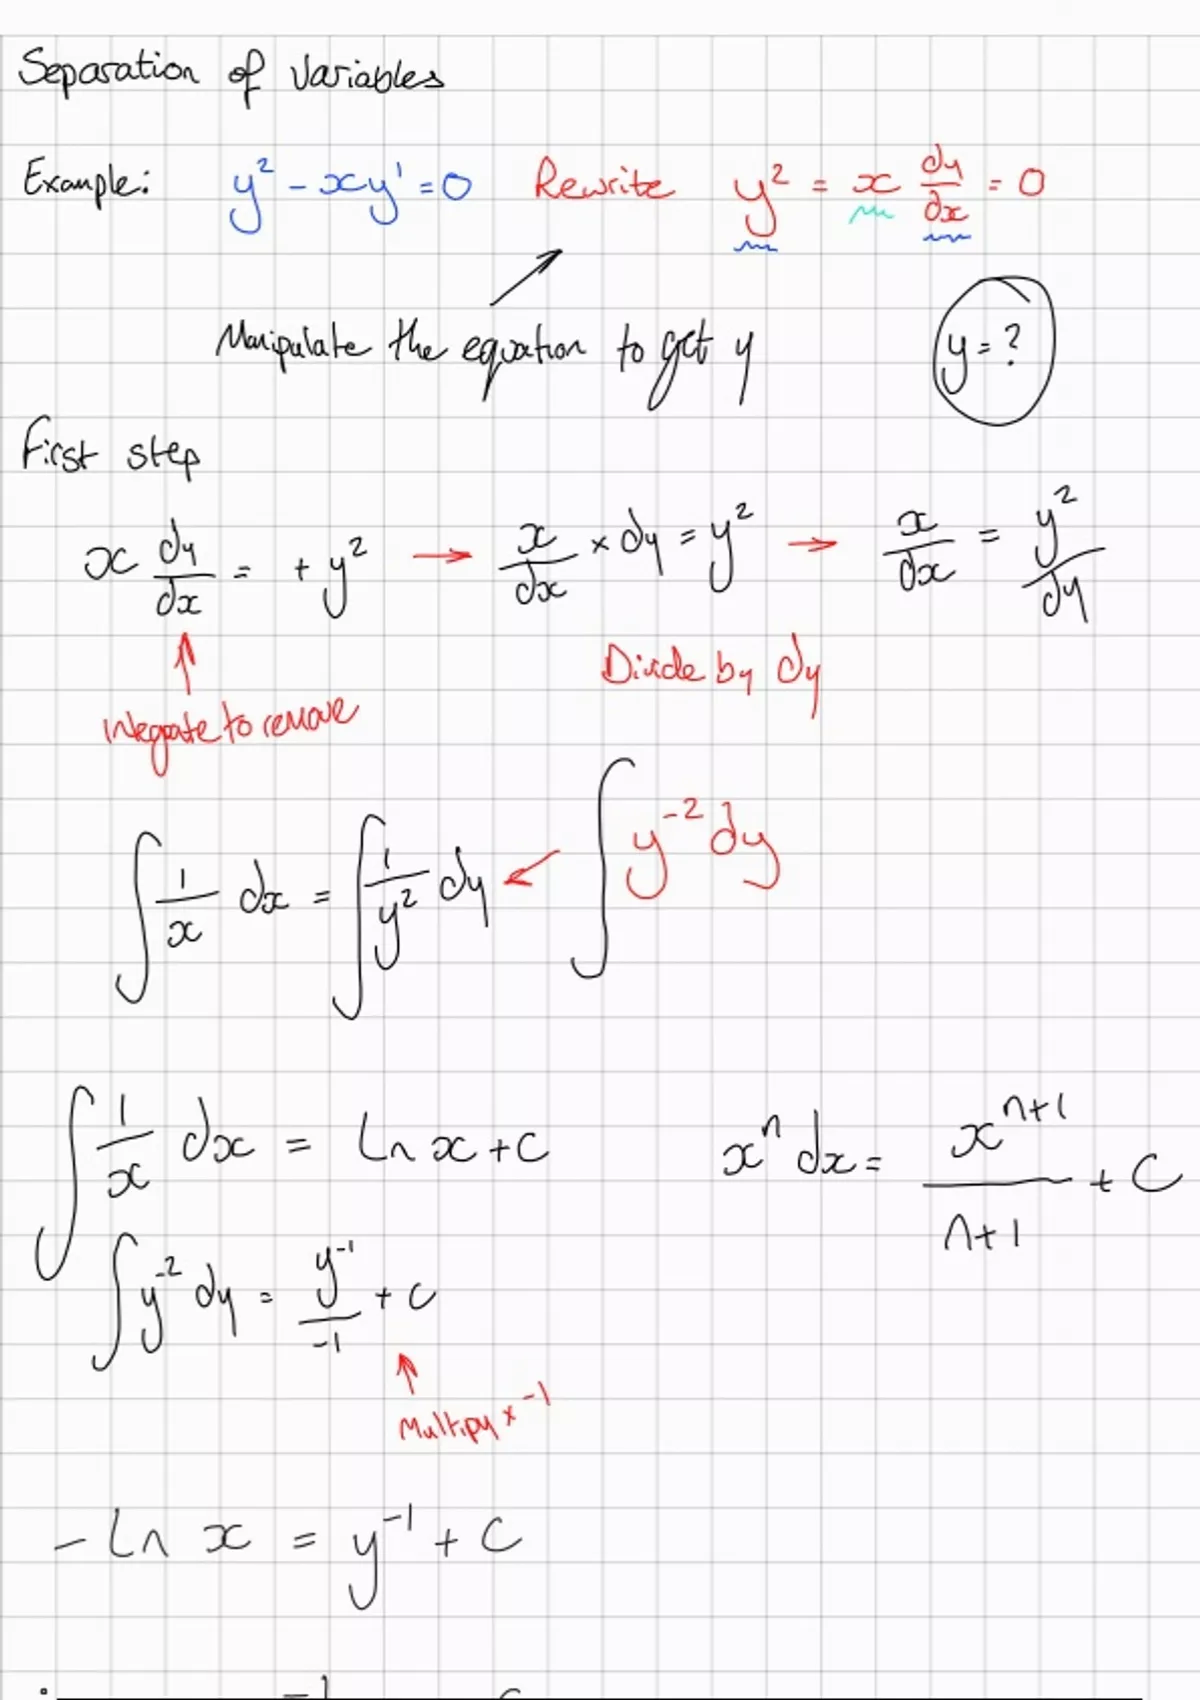 Separation of Variables
Example: y² - xy' = 0 Rewrite y² = x dy/dx = 0
Manipulate the equation to get y y = ?
First step
x dy/dx = + y² → x/dx × dy = y² → x/dx = y²/dy
↑ Divide by dy
integrate to remove
∫ 1/x dx = ∫ 1/y² dy ← ∫ y⁻² dy
∫ 1/x dx = ln x + c xⁿ dx = xⁿ⁺¹/n+1 + C
∫ y⁻² dy = y⁻¹/-1 + c
↑
Multipy × -1
- ln x = y⁻¹ + c